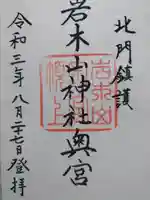 北門鎮護
岩木山神社奥宮
令和三年八月二十七日登拝